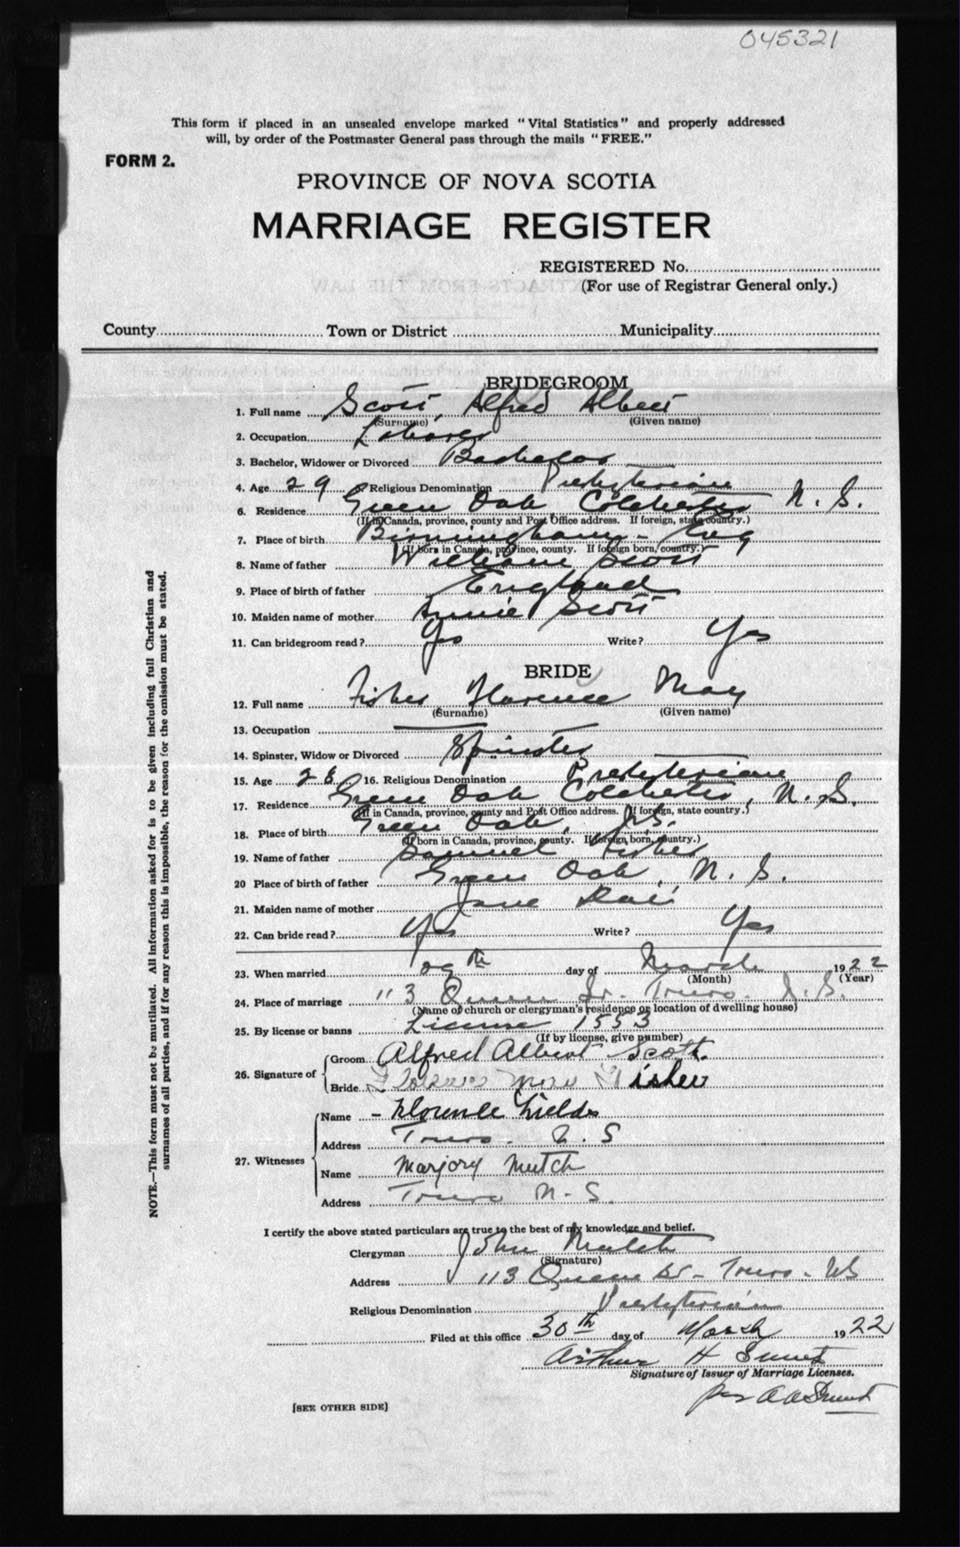 045321
This form if placed in an unsealed envelope marked "Vital Statistics" and properly addressed
will, by order of the Postmaster General pass through the mails "FREE."
FORM 2.
PROVINCE OF NOVA SCOTIA
MARRIAGE REGISTER
REGISTERED No.
(For use of Registrar General only.)
County Town or District Municipality
BRIDEGROOM
1. Full name Scott, Alfred Albert
(Surname) (Given name)
2. Occupation Laborer
3. Bachelor, Widower or Divorced Bachelor
4. Age 29 Religious Denomination Presbyterian
6. Residence Green Oak Colchester N. S.
(If in Canada, province, county and Post Office address. If foreign, state country.)
7. Place of birth Birmingham - Eng
(If born in Canada, province, county. If foreign born, country.)
8. Name of father William Scott
9. Place of birth of father England
10. Maiden name of mother Annie Scott
11. Can bridegroom read? Yes Write? Yes
BRIDE
12. Full name Fisher Florence May
(Surname) (Given name)
13. Occupation
14. Spinster, Widow or Divorced Spinster
15. Age 28 16. Religious Denomination Presbyterian
17. Residence Green Oak Colchester, N. S.
(If in Canada, province, county and Post Office address. If foreign, state country.)
18. Place of birth Green Oak, N.S.
(If born in Canada, province, county. If foreign born, country.)
19. Name of father Samuel Fisher
20 Place of birth of father Green Oak, N. S.
21. Maiden name of mother Jane
22. Can bride read? Yes Write? Yes
23. When married 29th day of March 1922
(Month) (Year)
24. Place of marriage 113 Queen St. Truro. N. S.
(Name of church or clergyman's residence or location of dwelling house)
25. By license or banns License 1553
(If by license, give number)
26. Signature of
Groom Alfred Albert Scott.
Bride Florence May Fisher
27. Witnesses
Name - Florence Fields
Address Truro. N. S
Name Marjory Mutch
Address Truro N. S.
I certify the above stated particulars are true to the best of my knowledge and belief.
Clergyman John Mutch
(Signature)
Address 113 Queen St - Truro - NS
Religious Denomination Presbyterian
Filed at this office 30th day of March 1922
Arthur H
Signature of Issuer of Marriage Licenses.
per
[SEE OTHER SIDE]
NOTE.—This form must not be mutilated. All information asked for is to be given including full Christian and
surnames of all parties, and if for any reason this is impossible, the reason for the omission must be stated.